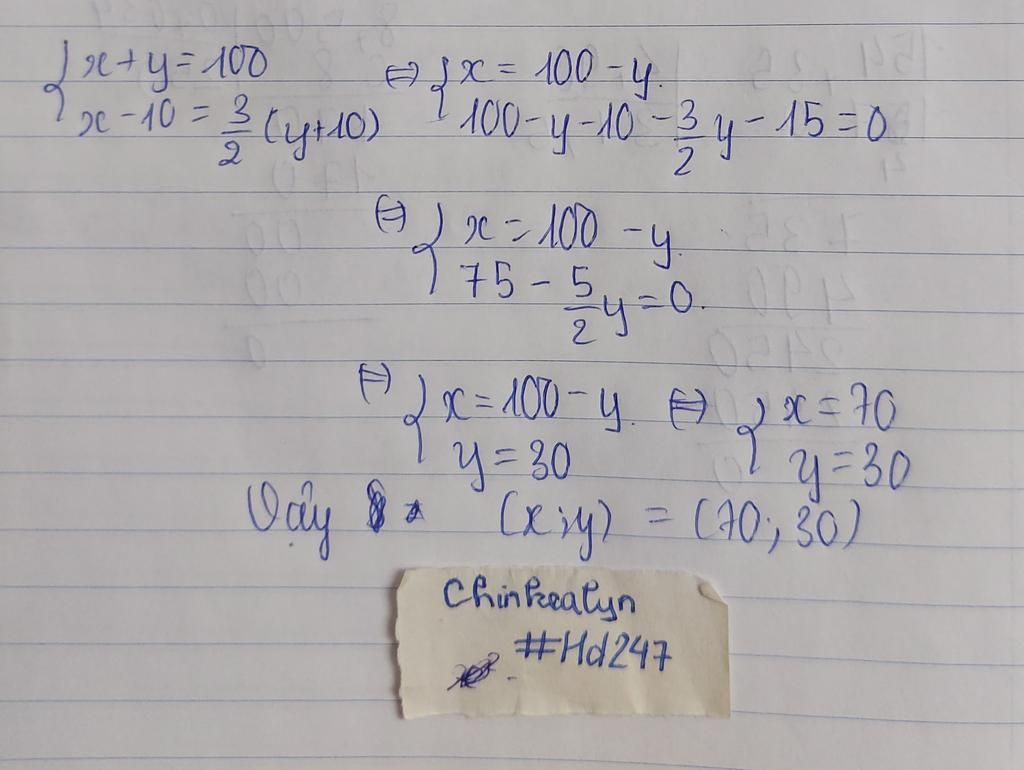 { x + y = 100 ⇔ { x = 100 - y.
x - 10 = 3/2 (y+10) 100 - y - 10 - 3/2 y - 15 = 0
⇔ { x = 100 - y.
75 - 5/2 y = 0.
⇔ { x = 100 - y. ⇔ { x = 70
y = 30 y = 30
Vậy (x;y) = (70; 30)
Chinkealyn
#Hd247